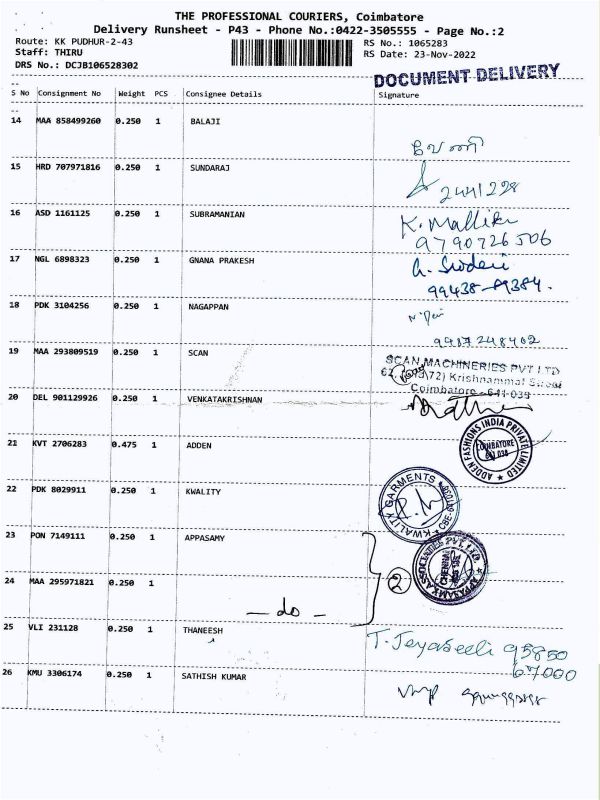 THE PROFESSIONAL COURIERS, Coimbatore
Delivery Runsheet - P43 - Phone No.:0422-3505555 - Page No.:2
Route: KK PUDHUR-2-43 RS No.: 1065283
Staff: THIRU RS Date: 23-Nov-2022
DRS No.: DCJB106528302
DOCUMENT DELIVERY
S No Consignment No Weight PCS Consignee Details Signature
14 MAA 858499260 0.250 1 BALAJI
வேணி
15 HRD 707971816 0.250 1 SUNDARAJ
2441228
16 ASD 1161125 0.250 1 SUBRAMANIAN K. Mallika
9790726506
17 NGL 6898323 0.250 1 GNANA PRAKESH
99438-89384.
18 PDK 3104256 0.250 1 NAGAPPAN
9987248402
19 MAA 293809519 0.250 1 SCAN SCAN MACHINERIES PVT LTD
Krishnammal Street
Coimbatore - 641 038
20 DEL 901129926 0.250 1 VENKATAKRISHNAN
21 KVT 2706283 0.475 1 ADDEN ADDEN FASHIONS INDIA PRIVATE LIMITED
COIMBATORE
641 038
22 PDK 8029911 0.250 1 KWALITY KWALITY GARMENTS
23 PON 7149111 0.250 1 APPASAMY APPASAMY ASSOCIATES PVT. LTD.
24 MAA 295971821 0.250 1 2
— do —
25 VLI 231128 0.250 1 THANEESH T. Jeyaseeli 95850
67000
26 KMU 3306174 0.250 1 SATHISH KUMAR